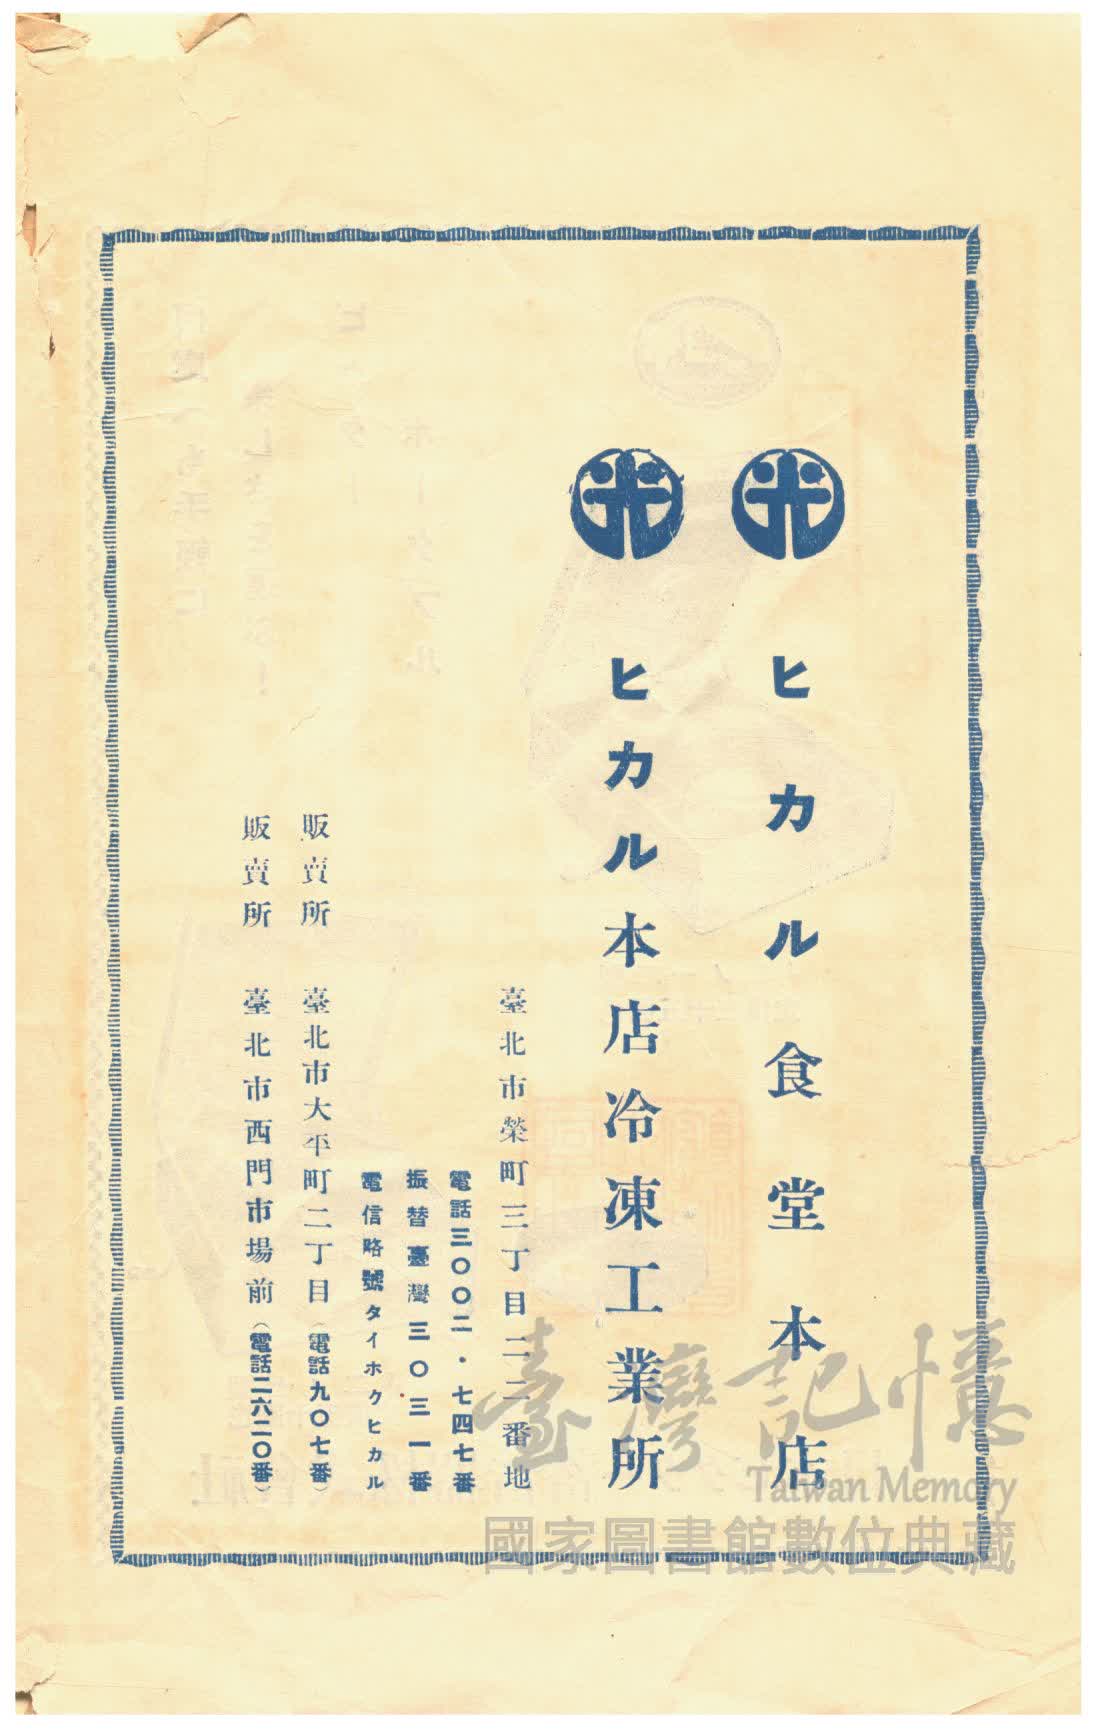 ヒカル食堂本店
ヒカル本店冷凍工業所
臺北市榮町三丁目二二番地
電話三〇〇二・七四七番
振替臺灣三〇三一番
電信略號タイホクヒカル
販賣所 臺北市太平町二丁目(電話九〇七番)
販賣所 臺北市西門市場前(電話二六二〇番)
臺灣記憶
Taiwan Memory
國家圖書館數位典藏